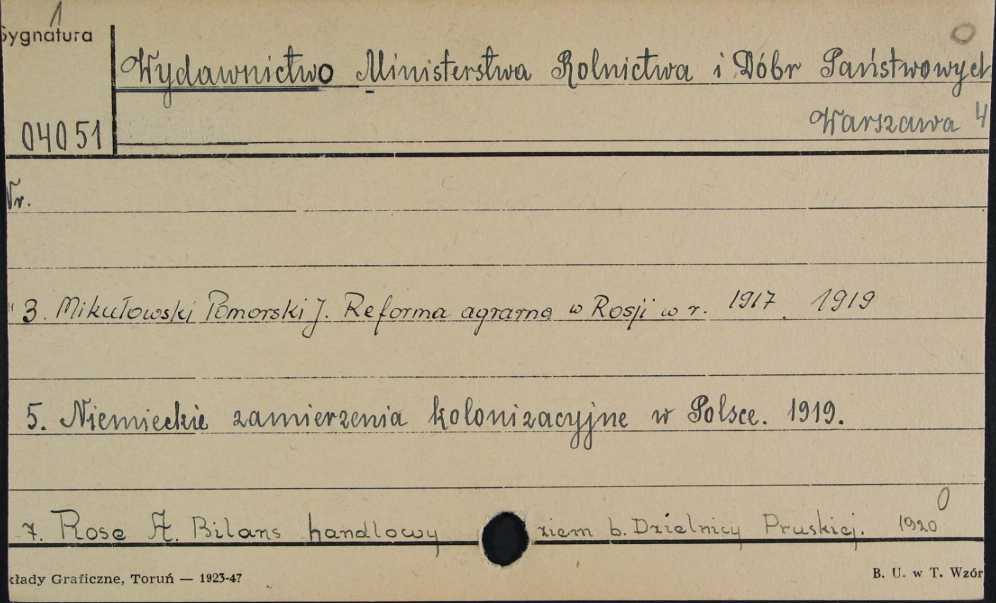 1
Sygnatura
Wydawnictwo Ministerstwa Rolnictwa i Dóbr Państwowych
Warszawa 4
04051
Nr.
3. Mikułowski Pomorski J. Reforma agrarna w Rosji w r. 1917. 1919
5. Niemieckie zamierzenia kolonizacyjne w Polsce. 1919.
7. Rose A. Bilans handlowy ziem b. Dzielnicy Pruskiej. 1920
kłady Graficzne, Toruń — 1923-47
B. U. w T. Wzór